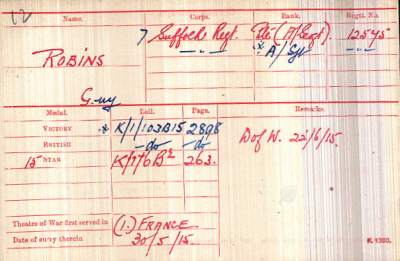 Name. Corps. Rank. Regtl. No.
ROBINS 7 Suffolk Regt. Pte (A/Sgt). 12545
—„— x A/Sgt —„—
Guy
Medal. Roll. Page. Remarks.
VICTORY x K/1/103B15 2898
BRITISH —do— —do—
15 STAR K/1/6B2 263. D of W. 22/6/15.
Theatre of War first served in (1.) FRANCE
Date of entry therein 30/5/15. K. 1380.